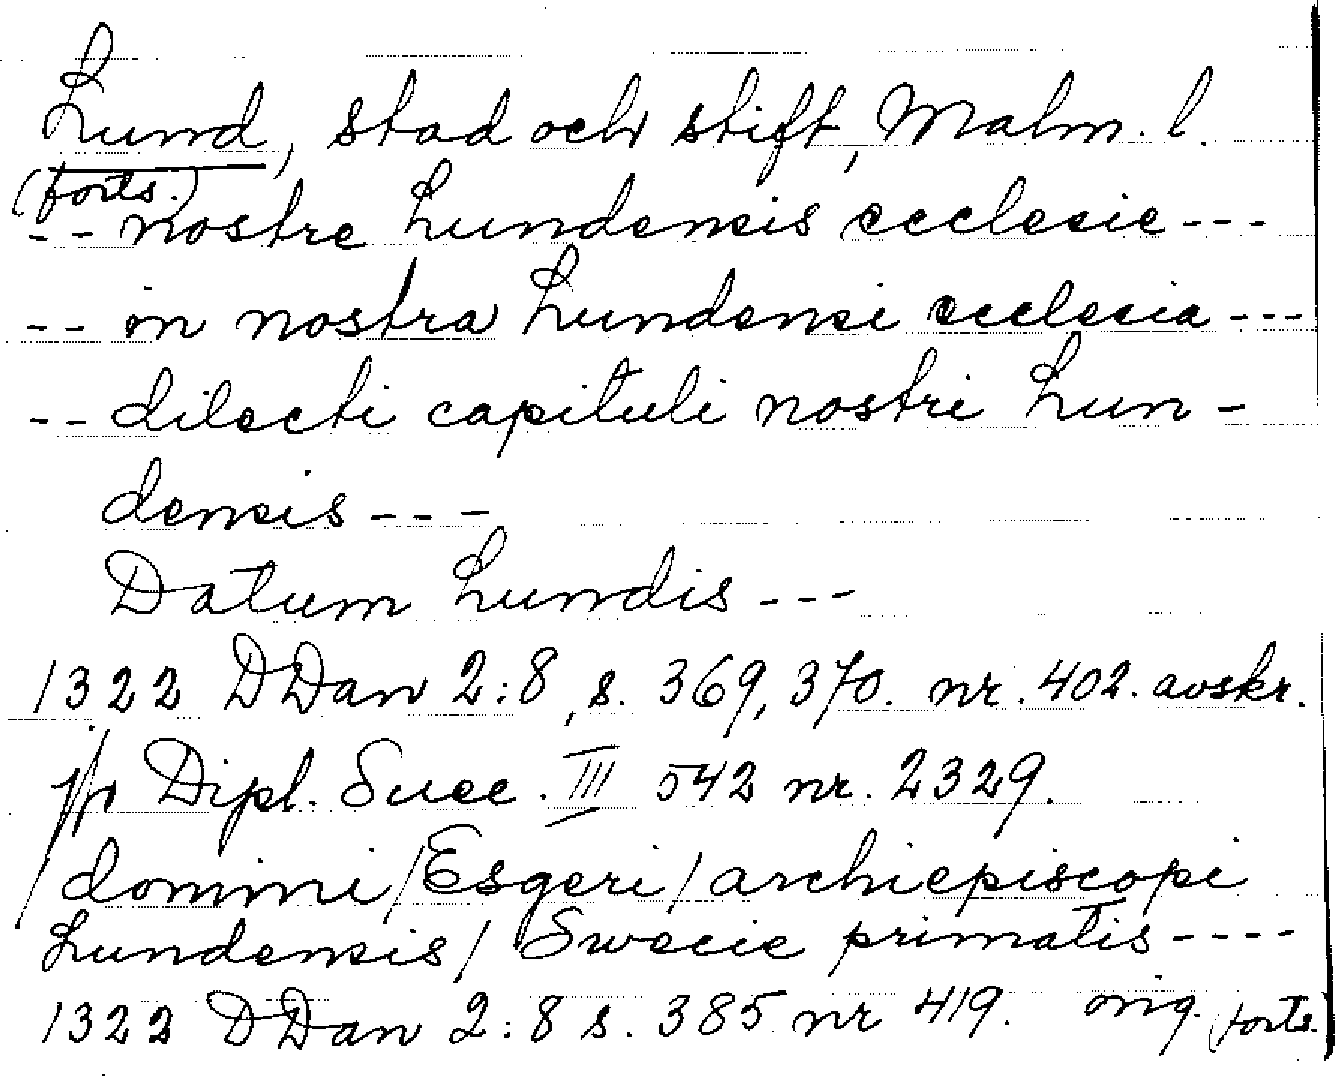 Lund, stad och stift, Malm. l.
(forts.)
-- nostre Lundensis ecclesie ---
-- in nostra Lundensi ecclesia ---
-- dilecti capituli nostri Lun-
densis ---
Datum Lundis ---
1322 DDan 2:8, s. 369, 370. nr. 402. avskr.
Dipl. Suec. III 542 nr. 2329.
/domini/Esgeri/archiepiscopi
Lundensis/ Swecie primatis ----
1322 DDan 2:8 s. 385 nr 419. orig. (forts.)